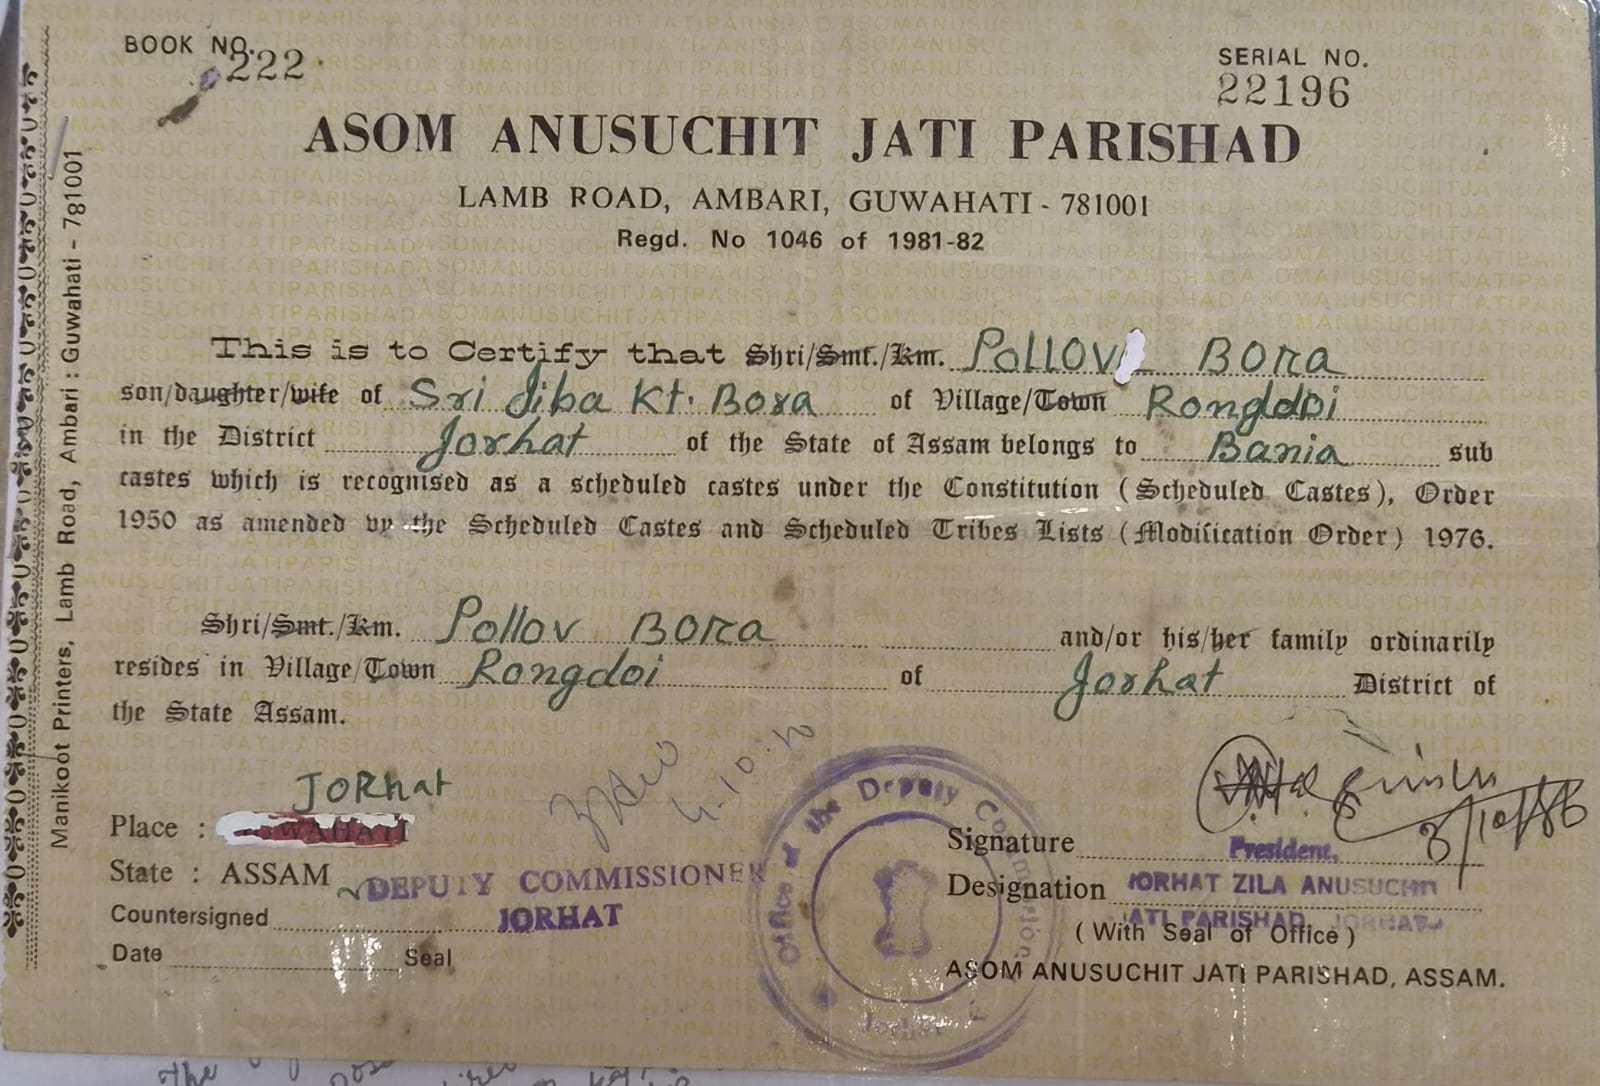 BOOK NO. 222
SERIAL NO. 22196
ASOM ANUSUCHIT JATI PARISHAD
LAMB ROAD, AMBARI, GUWAHATI - 781001
Regd. No 1046 of 1981-82
This is to Certify that Shri/Smt./Km. Pollov Bora
son/daughter/wife of Sri Jiba Kt. Bora of Village/Town Rongdoi
in the District Jorhat of the State of Assam belongs to Bania sub
castes which is recognised as a scheduled castes under the Constitution (Scheduled Castes), Order
1950 as amended by the Scheduled Castes and Scheduled Tribes Lists (Modification Order) 1976.
Shri/Smt./Km. Pollov Bora and/or his/her family ordinarily
resides in Village/Town Rongdoi of Jorhat District of
the State Assam.
JORhat
Place : WAHATI
State : ASSAM
DEPUTY COMMISSIONER
Countersigned JORHAT
Date Seal
Office of the Deputy Commissioner
Jorhat
Signature President,
Designation JORHAT ZILA ANUSUCHIT
JATI PARISHAD, JORHAT
(With Seal of Office)
ASOM ANUSUCHIT JATI PARISHAD, ASSAM.
Manikoot Printers, Lamb Road, Ambari : Guwahati - 781001
The